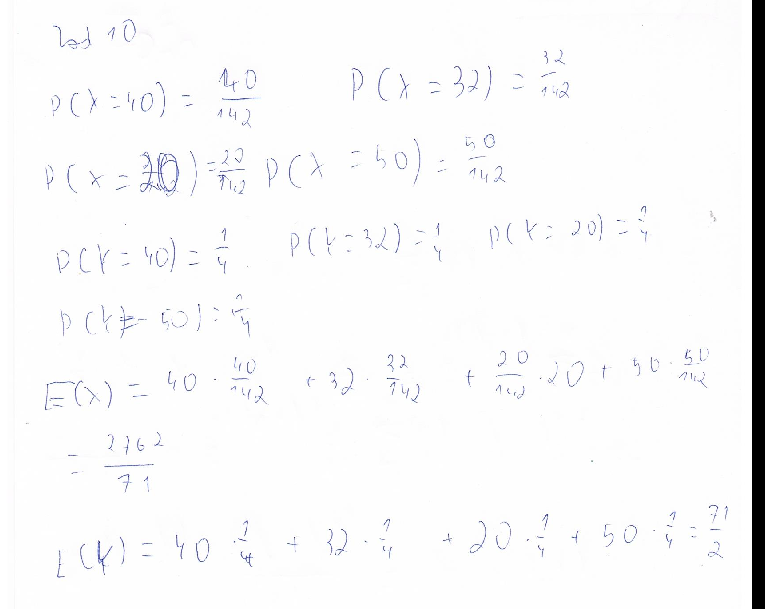 Zad 10
P(X=40) = 40/142 P(X=32) = 32/142
P(X=20) = 20/142 P(X=50) = 50/142
P(Y=40) = 1/4 P(Y=32) = 1/4 P(Y=20) = 1/4
P(Y=50) = 1/4
E(X) = 40 · 40/142 + 32 · 32/142 + 20/142 · 20 + 50 · 50/142
= 2762/71
E(Y) = 40 · 1/4 + 32 · 1/4 + 20 · 1/4 + 50 · 1/4 = 71/2